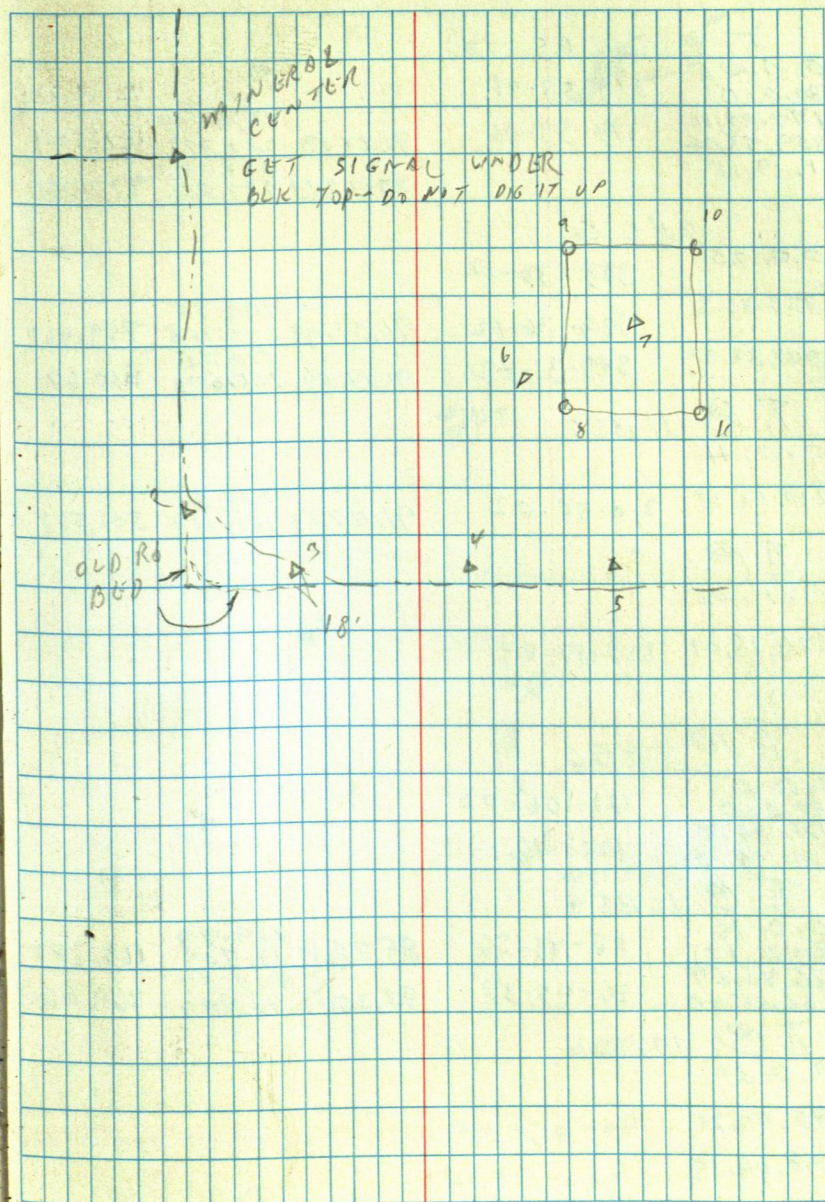 MINERAL
CENTER
1
GET SIGNAL UNDER
BLK TOP-- DO NOT DIG IT UP
9
10
7
6
8
11
2
OLD RD
BED
3
4
5
18'